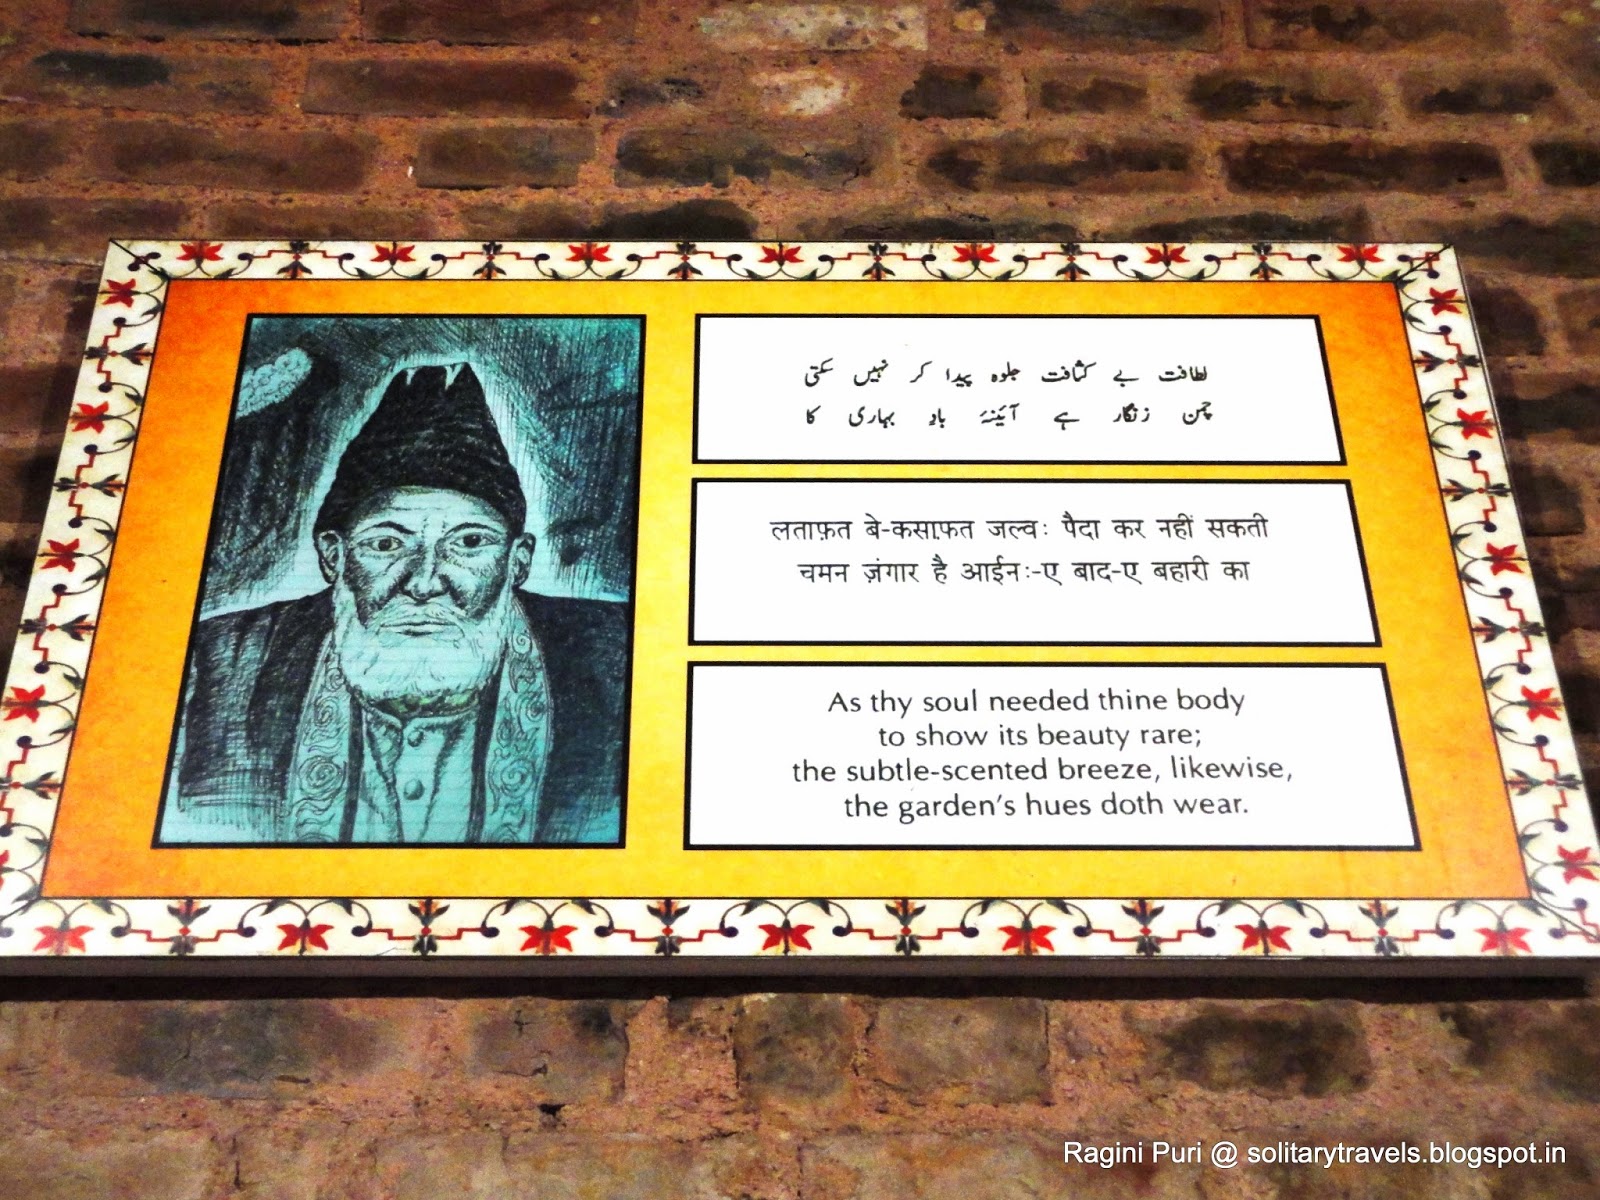 لطافت بے کثافت جلوہ پیدا کر نہیں سکتی
چمن زنگار ہے آئینۂ بادِ بہاری کا
लताफ़त बे-कसाफ़त जल्वः पैदा कर नहीं सकती
चमन ज़ंगार है आईनः-ए बाद-ए बहारी का
As thy soul needed thine body
to show its beauty rare;
the subtle-scented breeze, likewise,
the garden's hues doth wear.
Ragini Puri @ solitarytravels.blogspot.in